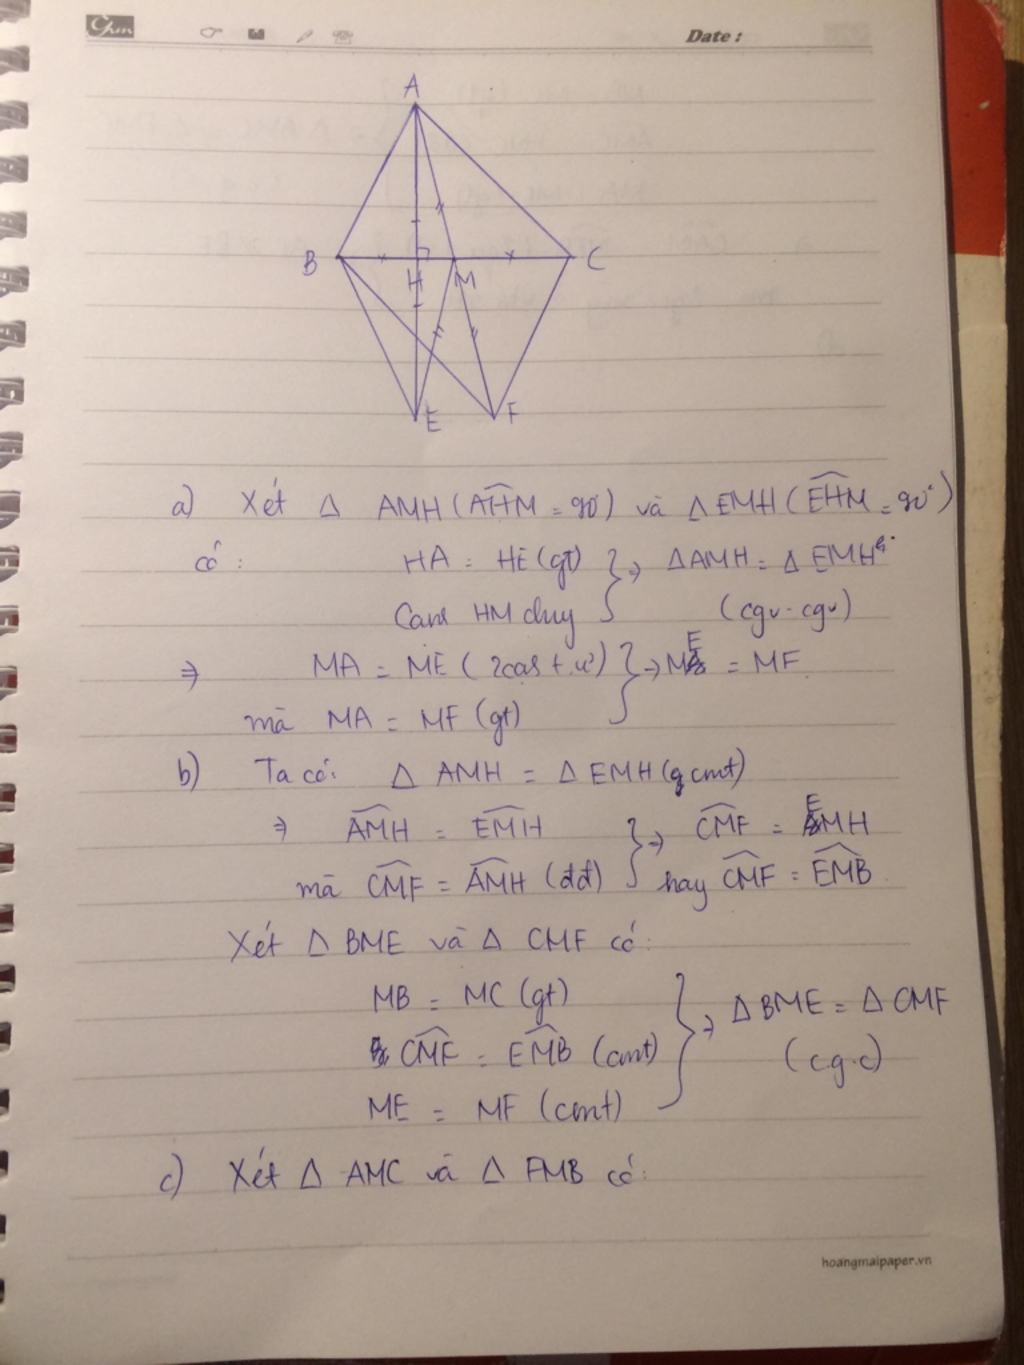 Date :
A
B
H
M
C
E
F
a) Xét Δ AMH (AHM = 90°) và Δ EMH (EHM = 90°)
có : HA = HE (gt) } ⇒ ΔAMH = Δ EMH
HM chung (cgv - cgv)
⇒ MA = ME ( ) } ⇒ ME = MF
mà MA = MF (gt)
b) Ta có: Δ AMH = Δ EMH ( cmt)
⇒ AMH = EMH } ⇒ CMF = EMH
mà CMF = AMH (đđ) hay CMF = EMB
Xét Δ BME và Δ CMF có:
MB = MC (gt)
CMF = EMB (cmt) } ⇒ Δ BME = Δ CMF
ME = MF (cmt) (c.g.c)
c) Xét Δ AMC và Δ FMB có:
hoangmaipaper.vn